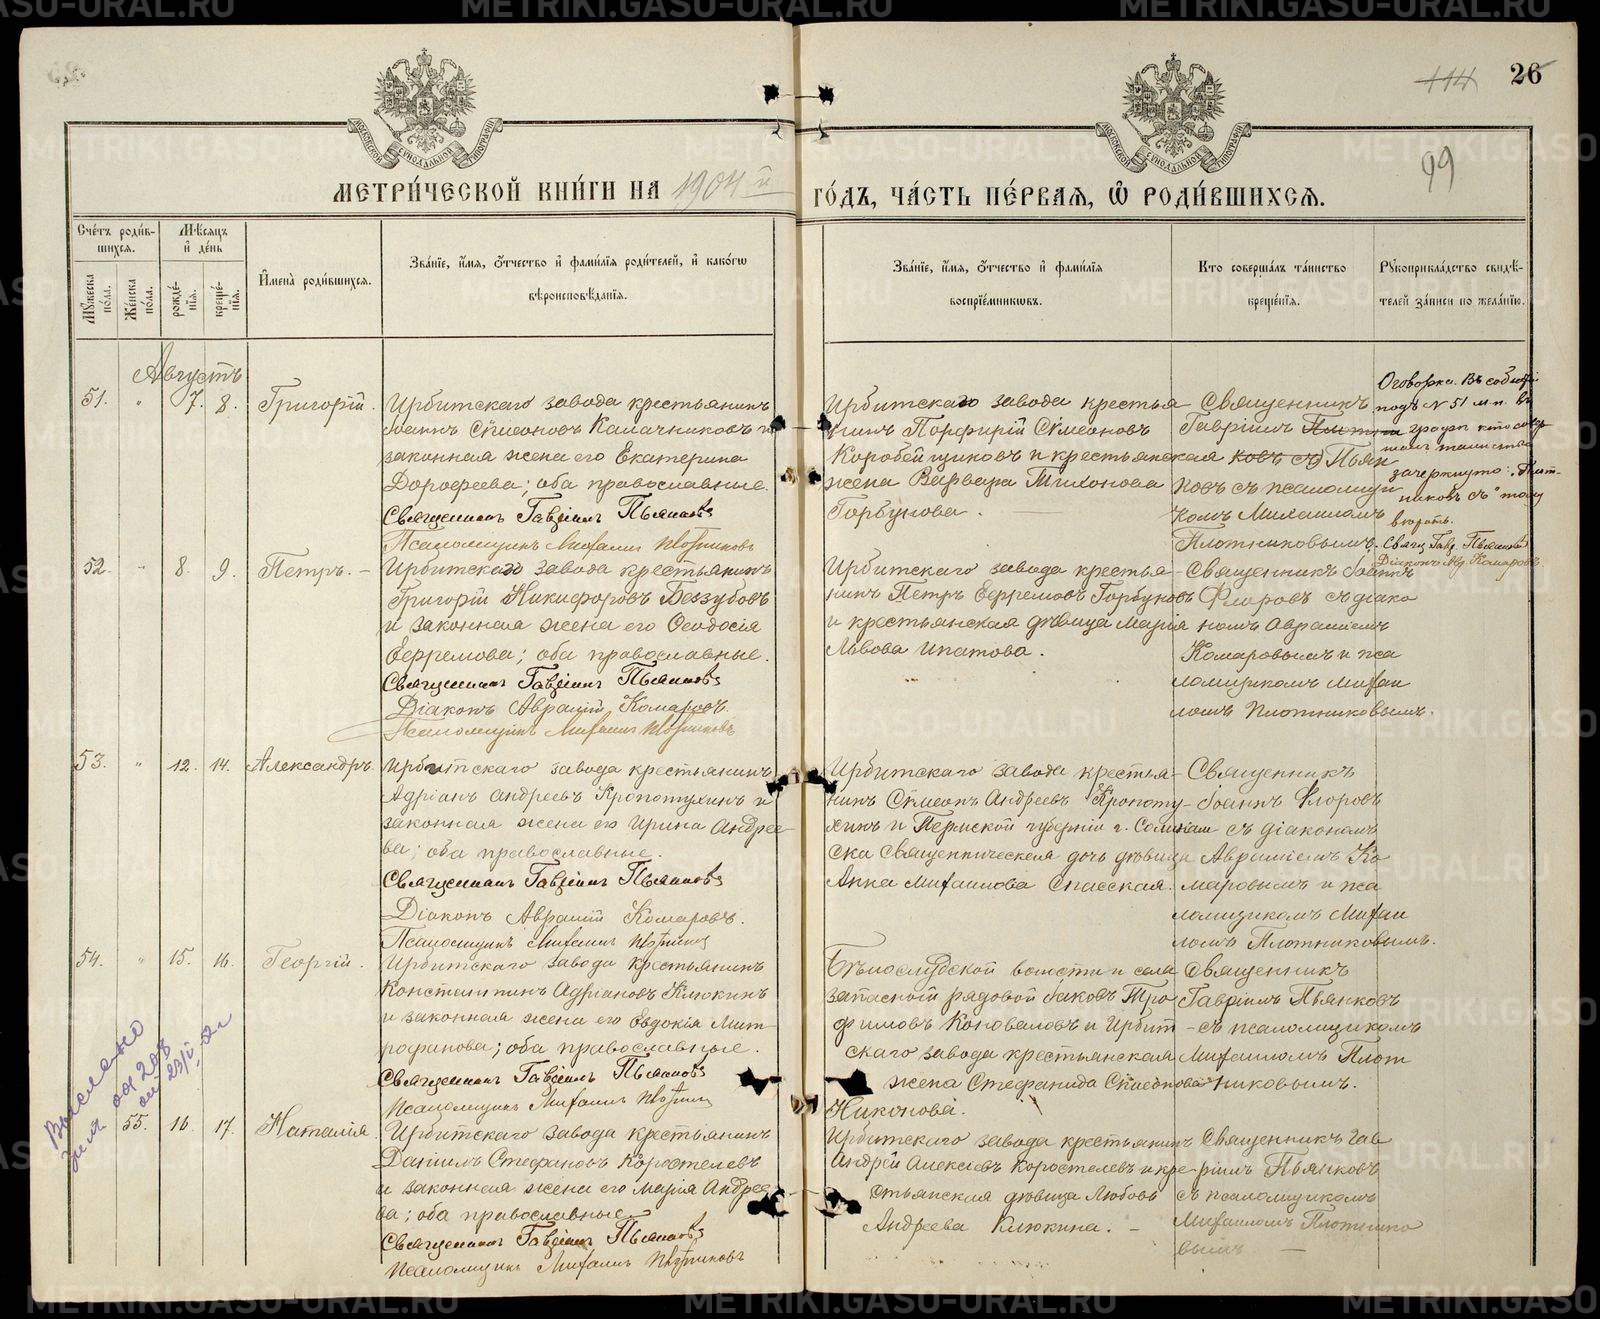 114
26
99
МОСКОВСКОЙ СѴНОДАЛЬНОЙ ТИПОГРАФІИ
МОСКОВСКОЙ СѴНОДАЛЬНОЙ ТИПОГРАФІИ
МЕТРИ́ЧЕСКОЙ КНИ́ГИ НА 1904 й ГО́ДЪ, ЧА́СТЬ ПЕ́РВАЯ, Ѿ РОДИ́ВШИХСЯ.
Сче́тъ роди́вшихся.
Мѣсяцъ и де́нь
Мꙋжеска по́ла.
Же́нска по́ла.
рожде́нїя.
креще́нїя.
Имена̀ роди́вшихся.
Зва́нїе, и́мя, ѻ҆́тчество и фами́лїя роди́телей, и како́гѡ
вѣроисповѣ́данїя.
Зва́нїе, и́мя, ѻ҆́тчество и фами́лїя
воспрїе́мникѡвъ.
Кто соверша́лъ та́инство
креще́нїя.
Рꙋкоприкла́дство свидѣ́-
телей за́писи по жела́нїю.
Августъ
51. " 7. 8. Григорій.
Ирбитскаго завода крестьянинъ
Іоаннъ Сѵмеоновъ Калачниковъ и
законная жена его Екатерина
Дорофеева; оба православные.
Священникъ Гавріилъ Пьянковъ
Псаломщикъ Михаилъ Плотниковъ
Ирбитскаго завода крестья-
нинъ Порфирій Сѵмеоновъ
Коробейщиковъ и крестьянская
жена Варвара Тихонова
Горбунова.
Священникъ
Гавріилъ Плотни
ковъ съ Пьян
ковъ съ псаломщи
комъ Михаиломъ
Плотниковымъ.
Оговорка. Въ
подъ № 51 м.п. въ
графѣ кто совер
шалъ таинство
зачеркнуто: „Плот-
никовъ съ"
Свящ. Гавр. Пьянковъ
Діаконъ Ав. Комаровъ
52. " 8. 9. Петръ. —
Ирбитскаго завода крестьянинъ
Григорій Никифоровъ Беззубовъ
и законная жена его Ѳеодосія
Ефремова; оба православные.
Священникъ Гавріилъ Пьянковъ
Діаконъ Аврамій Комаровъ.
Псаломщикъ Михаилъ Плотниковъ
Ирбитскаго завода крестья-
нинъ Петръ Ефремовъ Горбуновъ
и крестьянская дѣвица Марія
Львова Ипатова.
Священникъ Іоаннъ
Флоровъ съ діако
номъ Аврамiемъ
Комаровымъ и пса
ломщикомъ Михаи
ломъ Плотниковымъ.
53. " 12. 14. Александръ.
Ирбитскаго завода крестьянинъ
Адріанъ Андреевъ Кропотухинъ и
законная жена его Ирина Андрее-
ва; оба православные.
Священникъ Гавріилъ Пьянковъ
Діаконъ Аврамій Комаровъ.
Псаломщикъ Михаилъ Плотниковъ
Ирбитскаго завода крестья-
нинъ Сѵмеонъ Андреевъ Кропоту-
хинъ и Пермской губерніи г. Соликам
ска священническая дочь дѣвица
Анна Михаилова Спасская.
Священникъ
Іоаннъ Флоровъ
съ діакономъ
Аврамiемъ Ко
маровымъ и пса
ломщикомъ Михаи
ломъ Плотниковымъ.
54. " 15. 16. Георгій.
Ирбитскаго завода крестьянинъ
Константинъ Адріановъ Клюкинъ
и законная жена его Евдокія Мит-
рофанова; оба православные.
Священникъ Гавріилъ Пьянковъ
Псаломщикъ Михаилъ Плотниковъ
Бѣлослудской волости и села
запасной рядовой Іаковъ Тро
фимовъ Коноваловъ и Ирбит-
скаго завода крестьянская
жена Стефанида Сѵмеонова
Никонова.
Священникъ
Гавріилъ Пьянковъ
съ псаломщикомъ
Михаиломъ Плот
никовымъ.
55. 16. 17. Наталія.
Ирбитскаго завода крестьянинъ
Даніилъ Стефановъ Коростелевъ
и законная жена его Марія Андрее-
ва; оба православные.
Священникъ Гавріилъ Пьянковъ
Псаломщикъ Михаилъ Плотниковъ
Ирбитскаго завода крестьянинъ
Андрей Алексѣевъ Коростелевъ и кре-
стьянская дѣвица Любовь
Андреева Клюкина. —
Священникъ Гав
ріилъ Пьянковъ
съ псаломщикомъ
Михаиломъ Плотнико
вымъ —
Выслано
METRIKI.GASU-URAL.RU